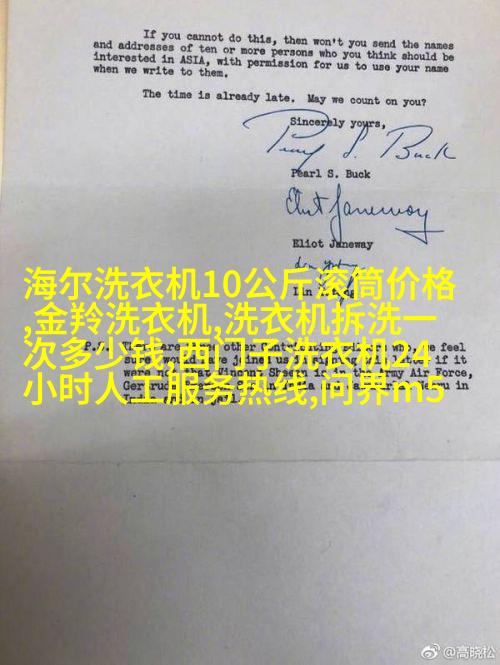 If you cannot do this, then won't you send the names
and addresses of ten or more persons who you think should be
interested in ASIA, with permission for us to use your name
when we write to them.
The time is already late. May we count on you?
Sincerely yours,
Pearl S. Buck
Pearl S. Buck
Eliot Janeway
Eliot Janeway
Lin
海尔洗衣机10公斤滚筒价格
,金羚洗衣机,洗衣机拆洗一
次多少钱,西门子洗衣机24
小时人工服务热线,问界m5
P.S. There are other Contributing who, we feel
sure would have joined us in if it
were not that Vincent Sheean is in the Army Air Force,
Gertrude and Nehru in
@高晓松